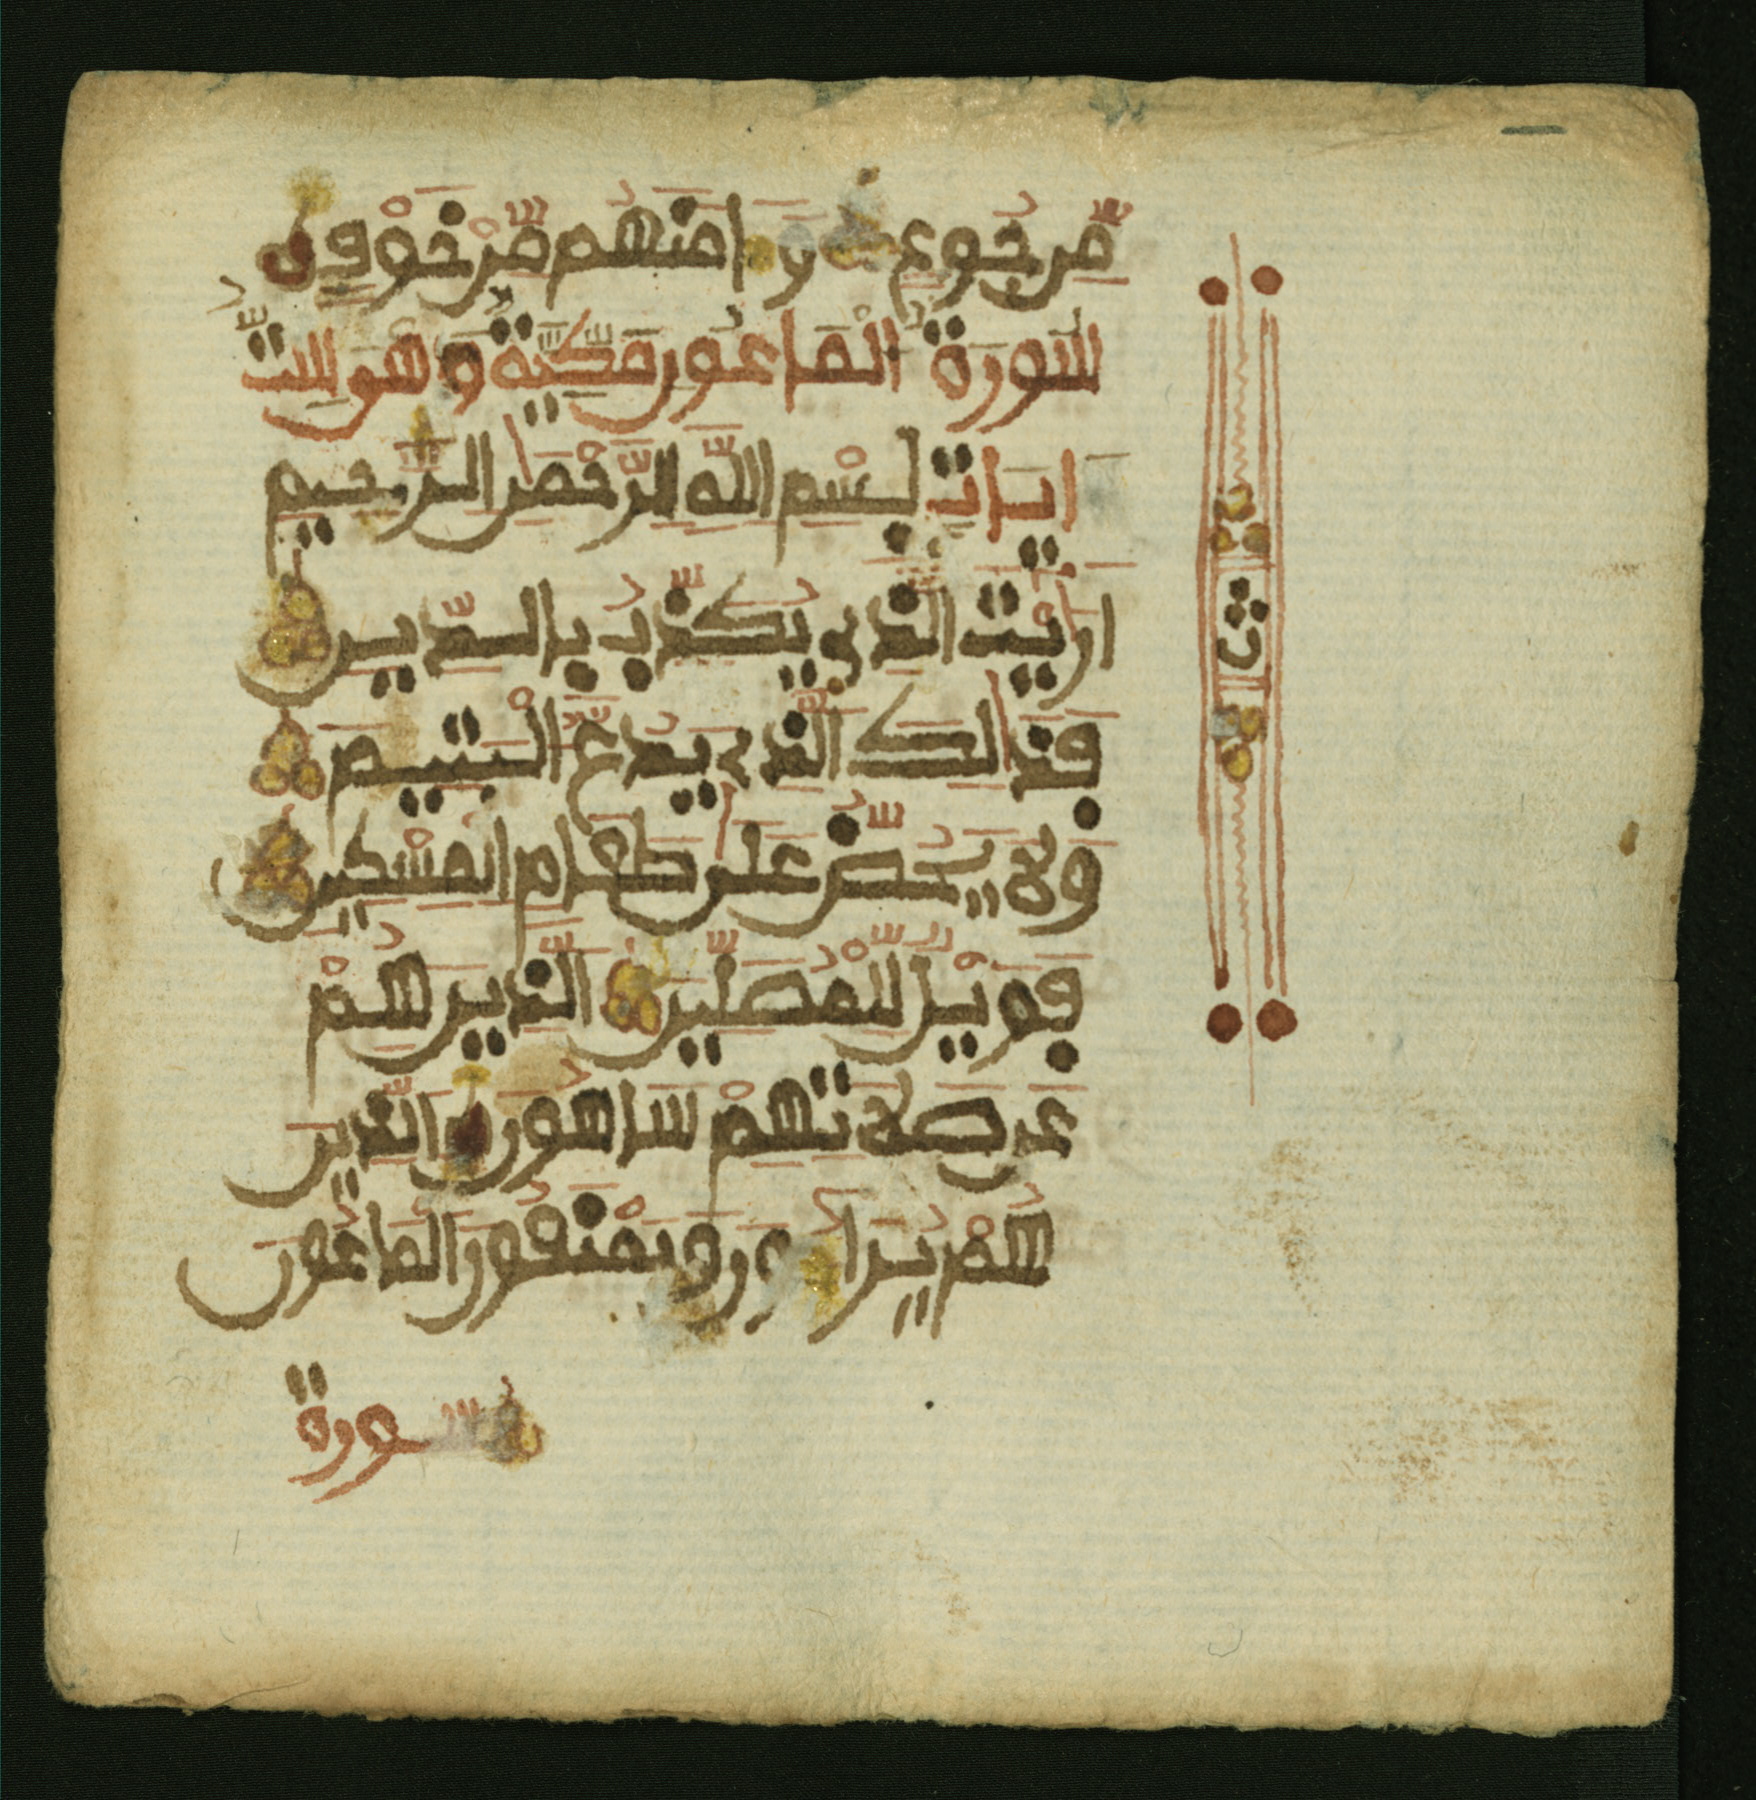 مِّن جُوعٍ وَءَامَنَهُم مِّنْ خَوْفٍ
سُورَةُ الْمَاعُونِ مَكِّيَّةٌ وَهِيَ سِتُّ
ءَايَاتٍ بِسْمِ اللَّهِ الرَّحْمَٰنِ الرَّحِيمِ
أَرَٰيْتَ الَّذِي يُكَذِّبُ بِالدِّينِ
فَذَٰلِكَ الَّذِي يَدُعُّ الْيَتِيمَ
وَلَا يَحُضُّ عَلَىٰ طَعَامِ الْمِسْكِينِ
فَوَيْلٌ لِّلْمُصَلِّينَ الَّذِينَ هُمْ
عَن صَلَاتِهِمْ سَاهُونَ الَّذِينَ
هُمْ يُرَآءُونَ وَيَمْنَعُونَ الْمَاعُونَ
سورة